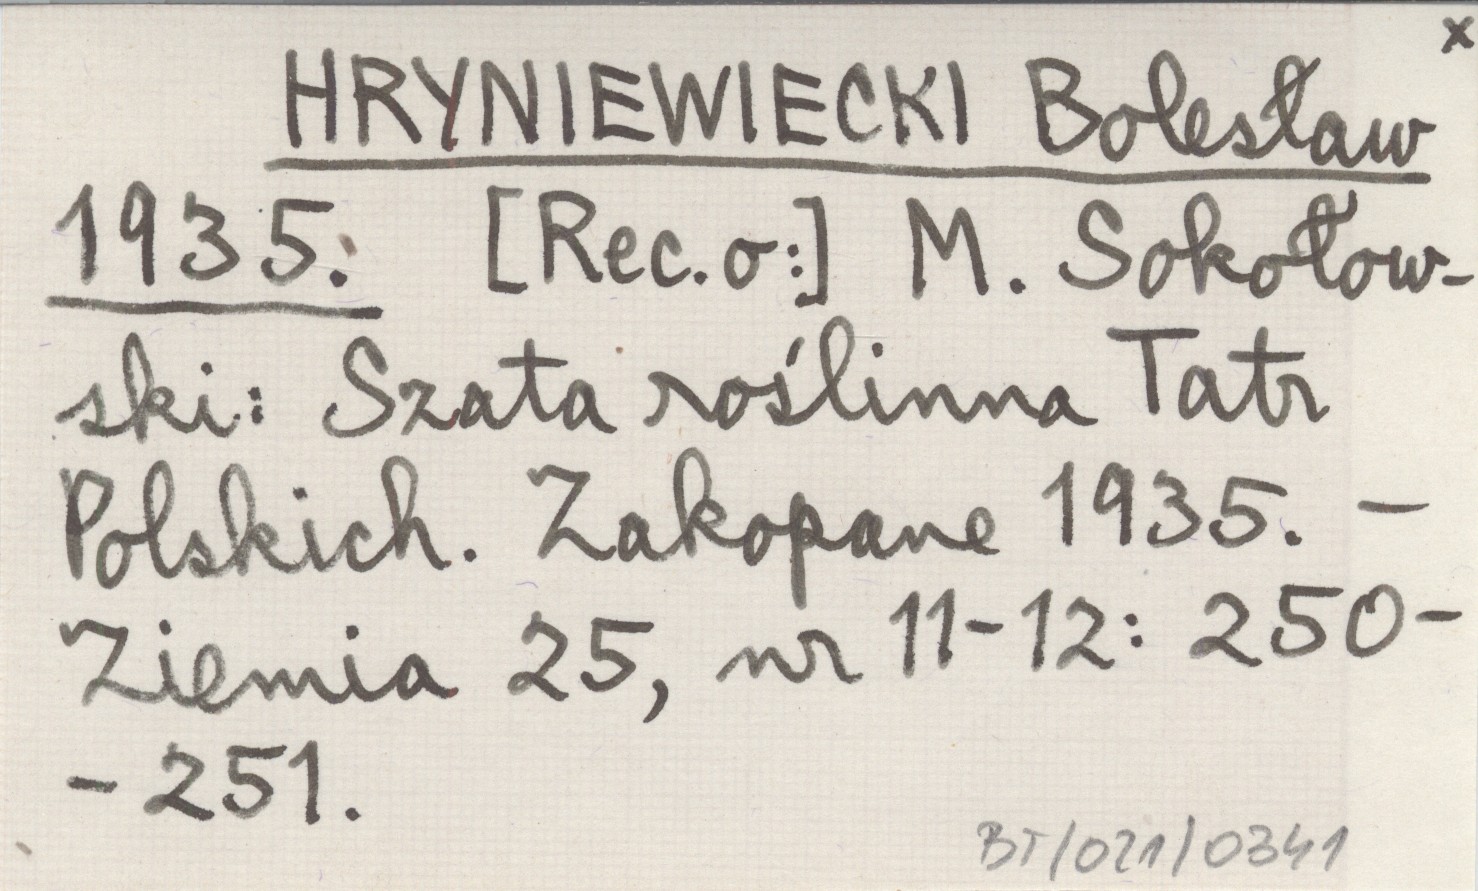 x
HRYNIEWIECKI Bolesław
1935: [Rec. o:] M. Sokołow-
ski: Szata roślinna Tatr
Polskich. Zakopane 1935. –
Ziemia 25, nr 11-12: 250-
- 251.
BT/021/0341